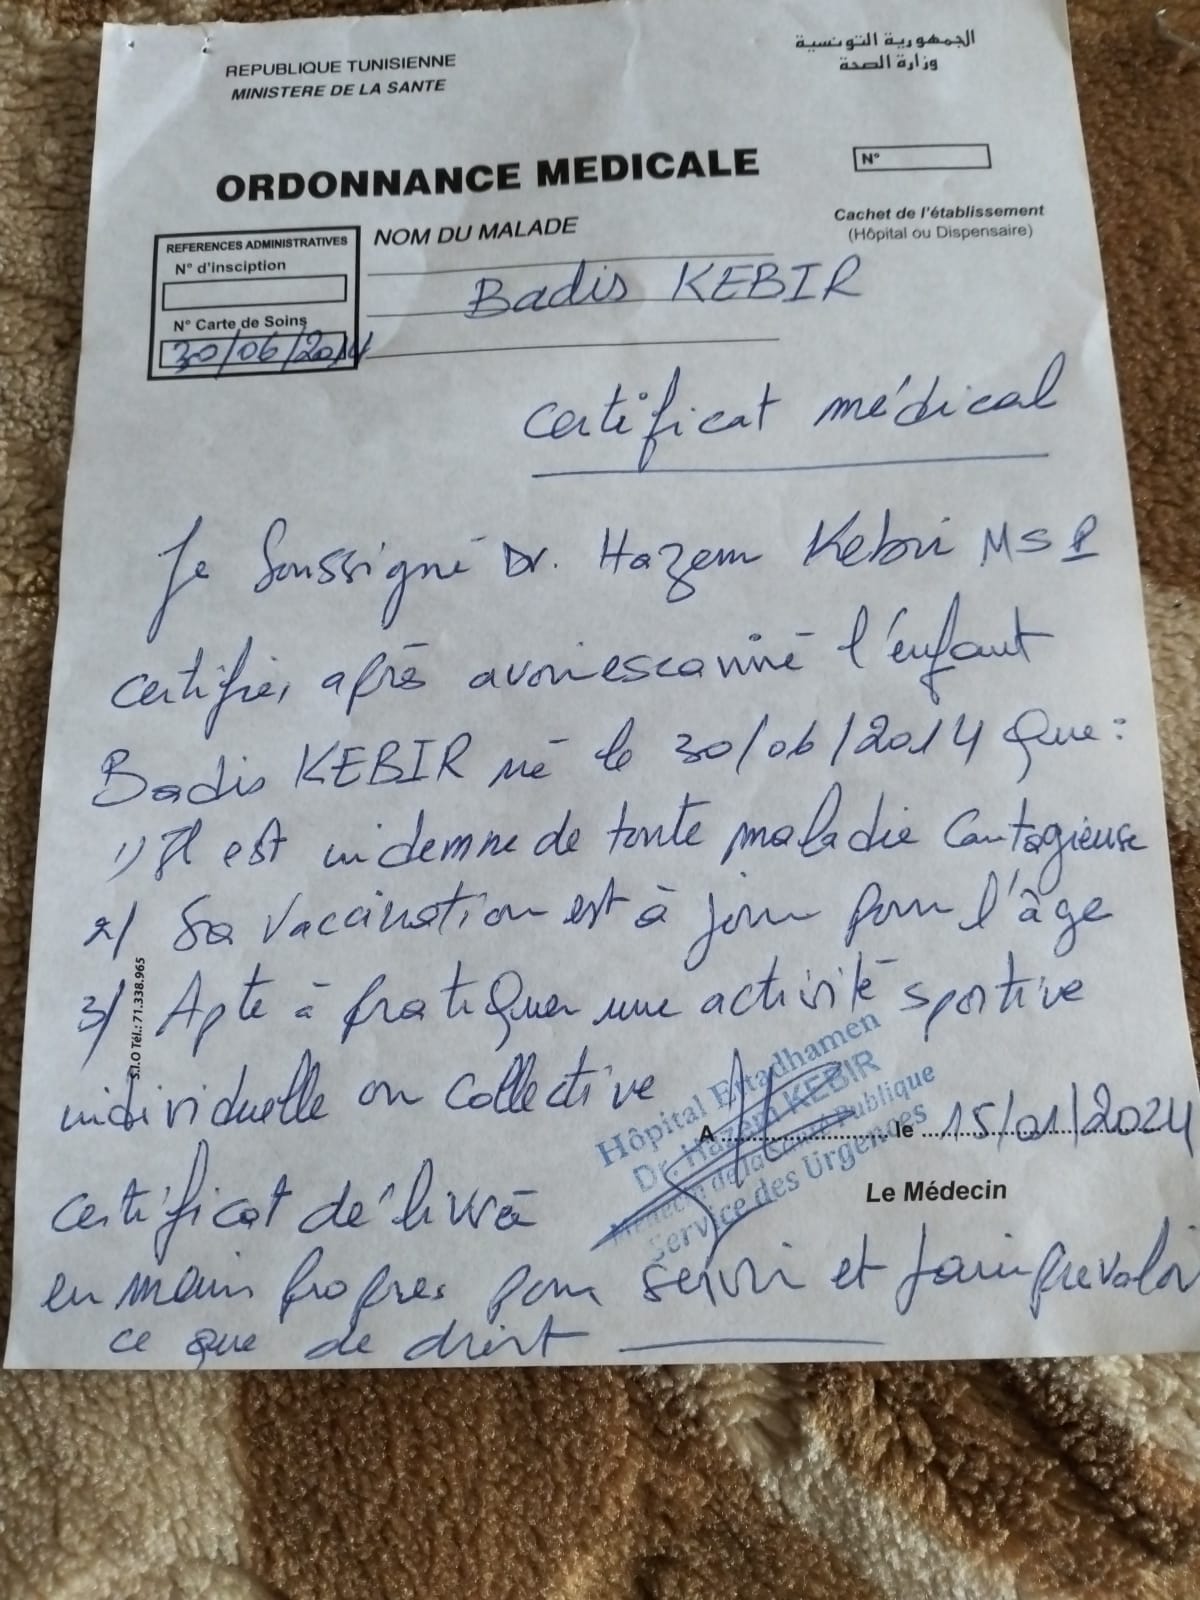 REPUBLIQUE TUNISIENNE
MINISTERE DE LA SANTE
الجمهورية التونسية
وزارة الصحة
ORDONNANCE MEDICALE
N°
Cachet de l'établissement
(Hôpital ou Dispensaire)
REFERENCES ADMINISTRATIVES
N° d'insciption
N° Carte de Soins
30/06/2014
NOM DU MALADE
Badis KEBIR
Certificat médical
Je Soussigné Dr. Hazem Kebir MSP
certifie, après avoir escaminé l'enfant
Badis KEBIR né le 30/06/2014 Que :
1) Il est indemne de toute maladie Contagieuse
2) Sa Vaccination est à jour pour l'âge
3) Apte à pratiquer une activité sportive
individuelle ou Collective
Hôpital Ettadhamen
Dr. Hazem KEBIR
Médecin de la Santé Publique
Service des Urgences
A ........ le 15/01/2024
Le Médecin
certificat délivré
en main propres pour servir et faire prévaloir
ce que de droit
S.I.O Tél.: 71.338.965